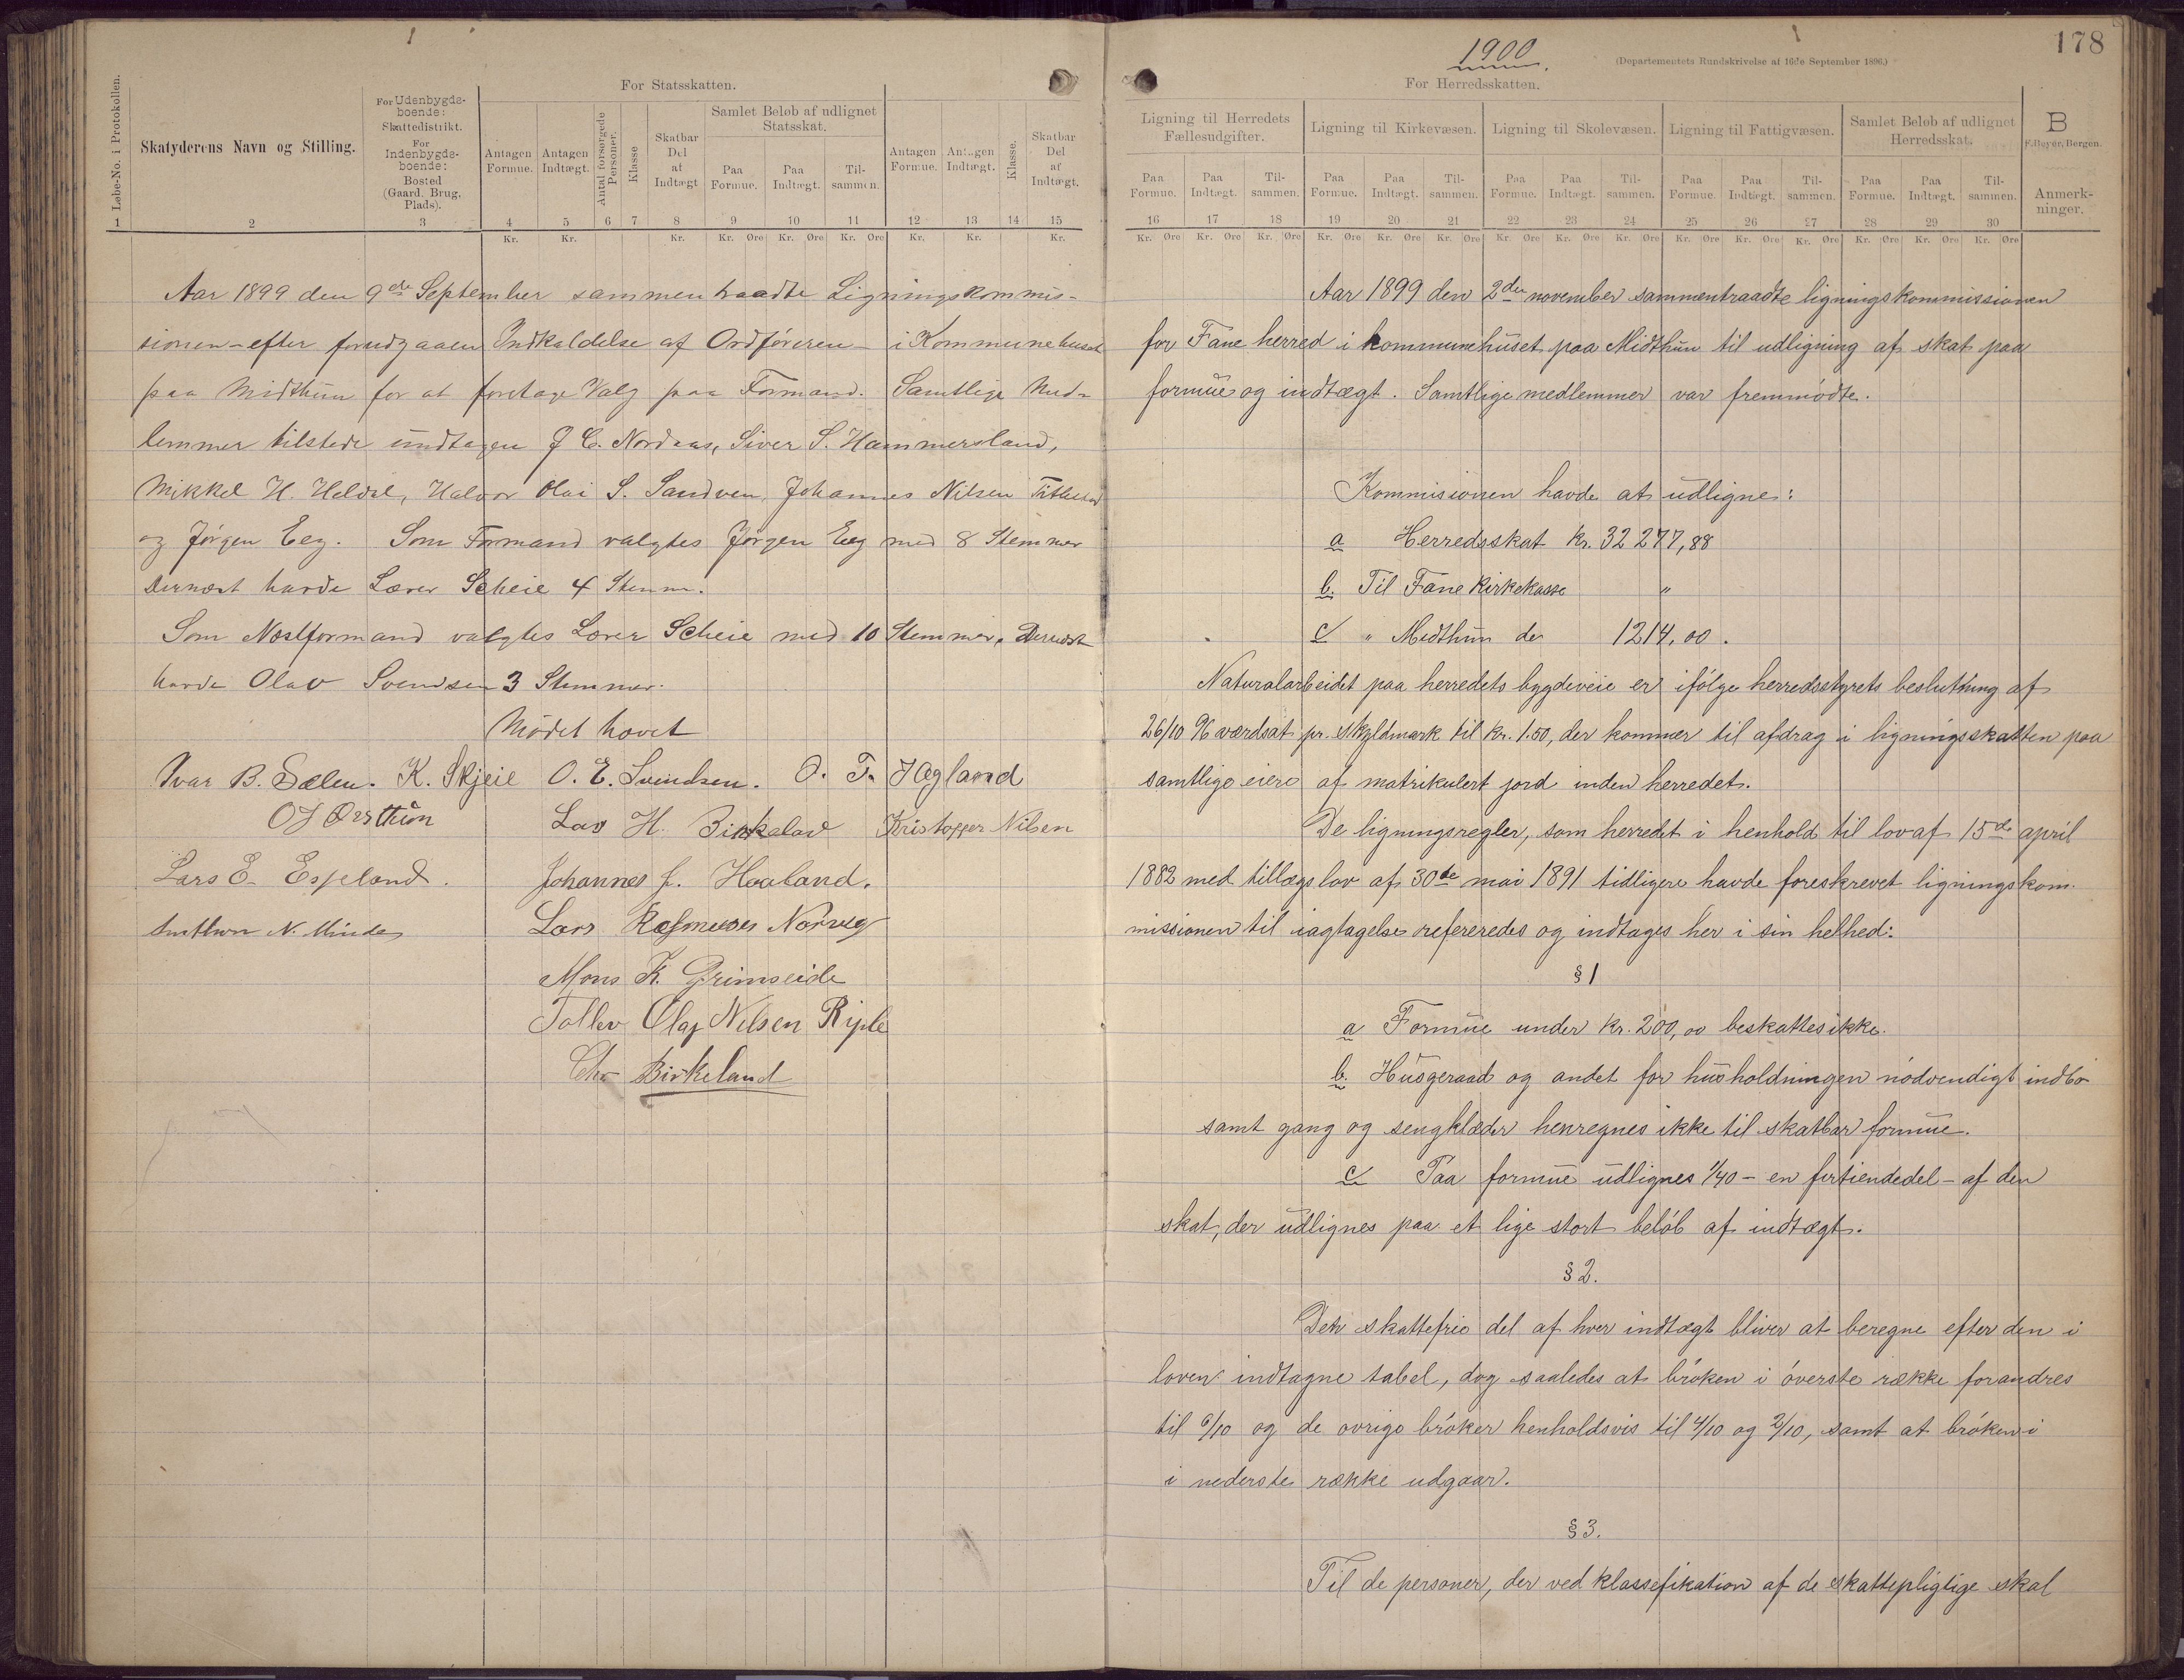 For Statsskatten.
Løbe-No. i Protokollen.
Skatyderens Navn og Stilling.
For Udenbygds-
boende:
Skattedistrikt.
For
Indenbygds-
boende:
Bosted
(Gaard, Brug,
Plads).
Antagen
Formue.
Antagen
Indtægt.
Antal forsørgede
Personer.
Klasse
Skatbar
Del
af
Indtægt
Samlet Beløb af udlignet
Statsskat.
Paa
Formue.
Paa
Indtægt.
Til-
sammen.
Antagen
Formue.
Antagen
Indtægt.
Klasse.
Skatbar
Del
af
Indtægt.
1 2 3 4 5 6 7 8 9 10 11 12 13 14 15
Kr. Kr. Kr. Kr. Øre Kr. Øre Kr. Øre Kr. Kr. Kr.
Aar 1899 den 9de September sammentraadte Ligningskommis-
sionen - efter forudgaaen Indkaldelse af Ordføreren - i Kommunehuset
paa Midthun for at foretage Valg paa Formand. Samtlige Med-
lemmer tilstede undtagen J C. Nordaas, Siver S. Hammersland,
Mikkel H. Heldal, Halvor Olai S. Sandven, Johannes Nilsen
og Jørgen Eeg. Som Formand valgtes Jørgen Eeg med 8 Stemmer
Dernæst havde Lærer Scheie 4 Stemm.
Som Næstformand valgtes Lærer Scheie med 10 Stemmer, Dernæst
havde Olav Svendsen 3 Stemmer.
Mødet hævet
Ivar B. Sælen. K. Skjeie O. E. Svendsen. O. T. Hagland
Lars H. Birkeland Kristoffer Nilsen
Lars E. Espeland. Johannes J. Haaland.
N. Minde Lars Rasmusen
Mons K. Grimseide
Tollev Olaf Nilsen Riple
Chr Birkeland
1900.
178
(Departementets Rundskrivelse af 16de September 1896.)
For Herredsskatten.
Ligning til Herredets
Fællesudgifter.
Ligning til Kirkevæsen.
Ligning til Skolevæsen.
Ligning til Fattigvæsen.
Samlet Beløb af udlignet
Herredsskat.
B
F. Beyer, Bergen.
Anmerk-
ninger.
Paa
Formue.
Paa
Indtægt.
Til-
sammen.
Paa
Formue.
Paa
Indtægt.
Til-
sammen.
Paa
Formue.
Paa
Indtægt.
Til-
sammen.
Paa
Formue.
Paa
Indtægt.
Til-
sammen.
Paa
Formue.
Paa
Indtægt.
Til-
sammen.
16 17 18 19 20 21 22 23 24 25 26 27 28 29 30
Kr. Øre Kr. Øre Kr. Øre Kr. Øre Kr. Øre Kr. Øre Kr. Øre Kr. Øre Kr. Øre Kr. Øre Kr. Øre Kr. Øre Kr. Øre Kr. Øre Kr. Øre
Aar 1899 den 2den november sammentraadte ligningskommissionen
for Fane herred i kommunehuset paa Midthun til udligning af skat paa
formue og indtægt. Samtlige medlemmer var fremmødte.
Kommisionen havde at udligne:
a Herredsskat Kr. 32 277,88
b. Til Fane Kirkekasse "
c " Midthun do 1214,00.
Naturalarbeidet paa herredets bygdeveie er ifølge herredsstyrets beslutning af
26/10 96 værdsat pr. skyldmark til kr. 1.50, der kommer til afdrag i ligningsskatten paa
samtlige eiere af matrikulert jord inden herredet.
De ligningsregler, som herredet i henhold til lov af 15de april
1882 med tillægslov af 30de mai 1891 tidligere havde foreskrevet ligningskom-
missionen til iagtagelse refereredes og indtages her i sin helhed:
§ 1
a Formue under kr. 200,00 beskattes ikke.
b. Husgeraad og andet for husholdningen nødvendigt indbo
samt gang og sengklæder henregnes ikke til skatbar formue.
c Paa formue udlignes 1/40 - en firtiendedel - af den
skat, der udlignes paa et lige stort beløb af indtægt.
§ 2.
Den skattefrie del af hver indtægt bliver at beregne efter den i
loven indtagne tabel, dog saaledes at brøken i øverste række forandres
til 6/10 og de øvrige brøker henholdsvis til 4/10 og 2/10, samt at brøken i
i nederste række udgaar.
§ 3.
Til de personer, der ved klassefikation af de skattepligtige skal